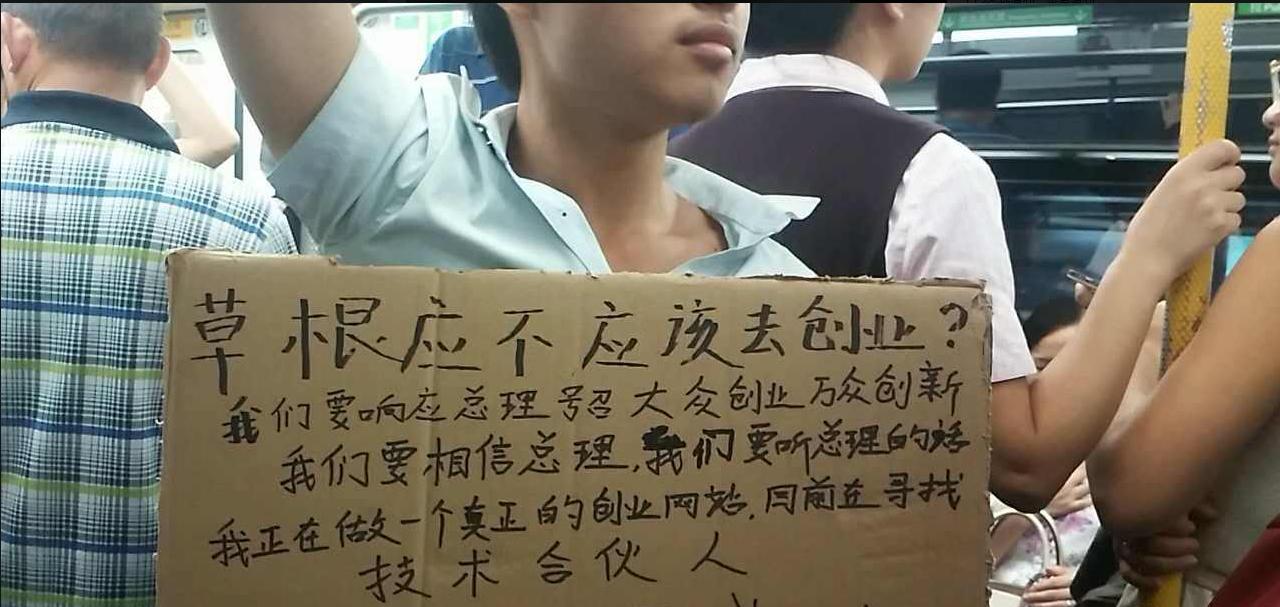 草根应不应该去创业?
我们要响应总理号召大众创业万众创新
我们要相信总理,我们要听总理的话
我正在做一个真正的创业网站,目前在寻找
技术合伙人